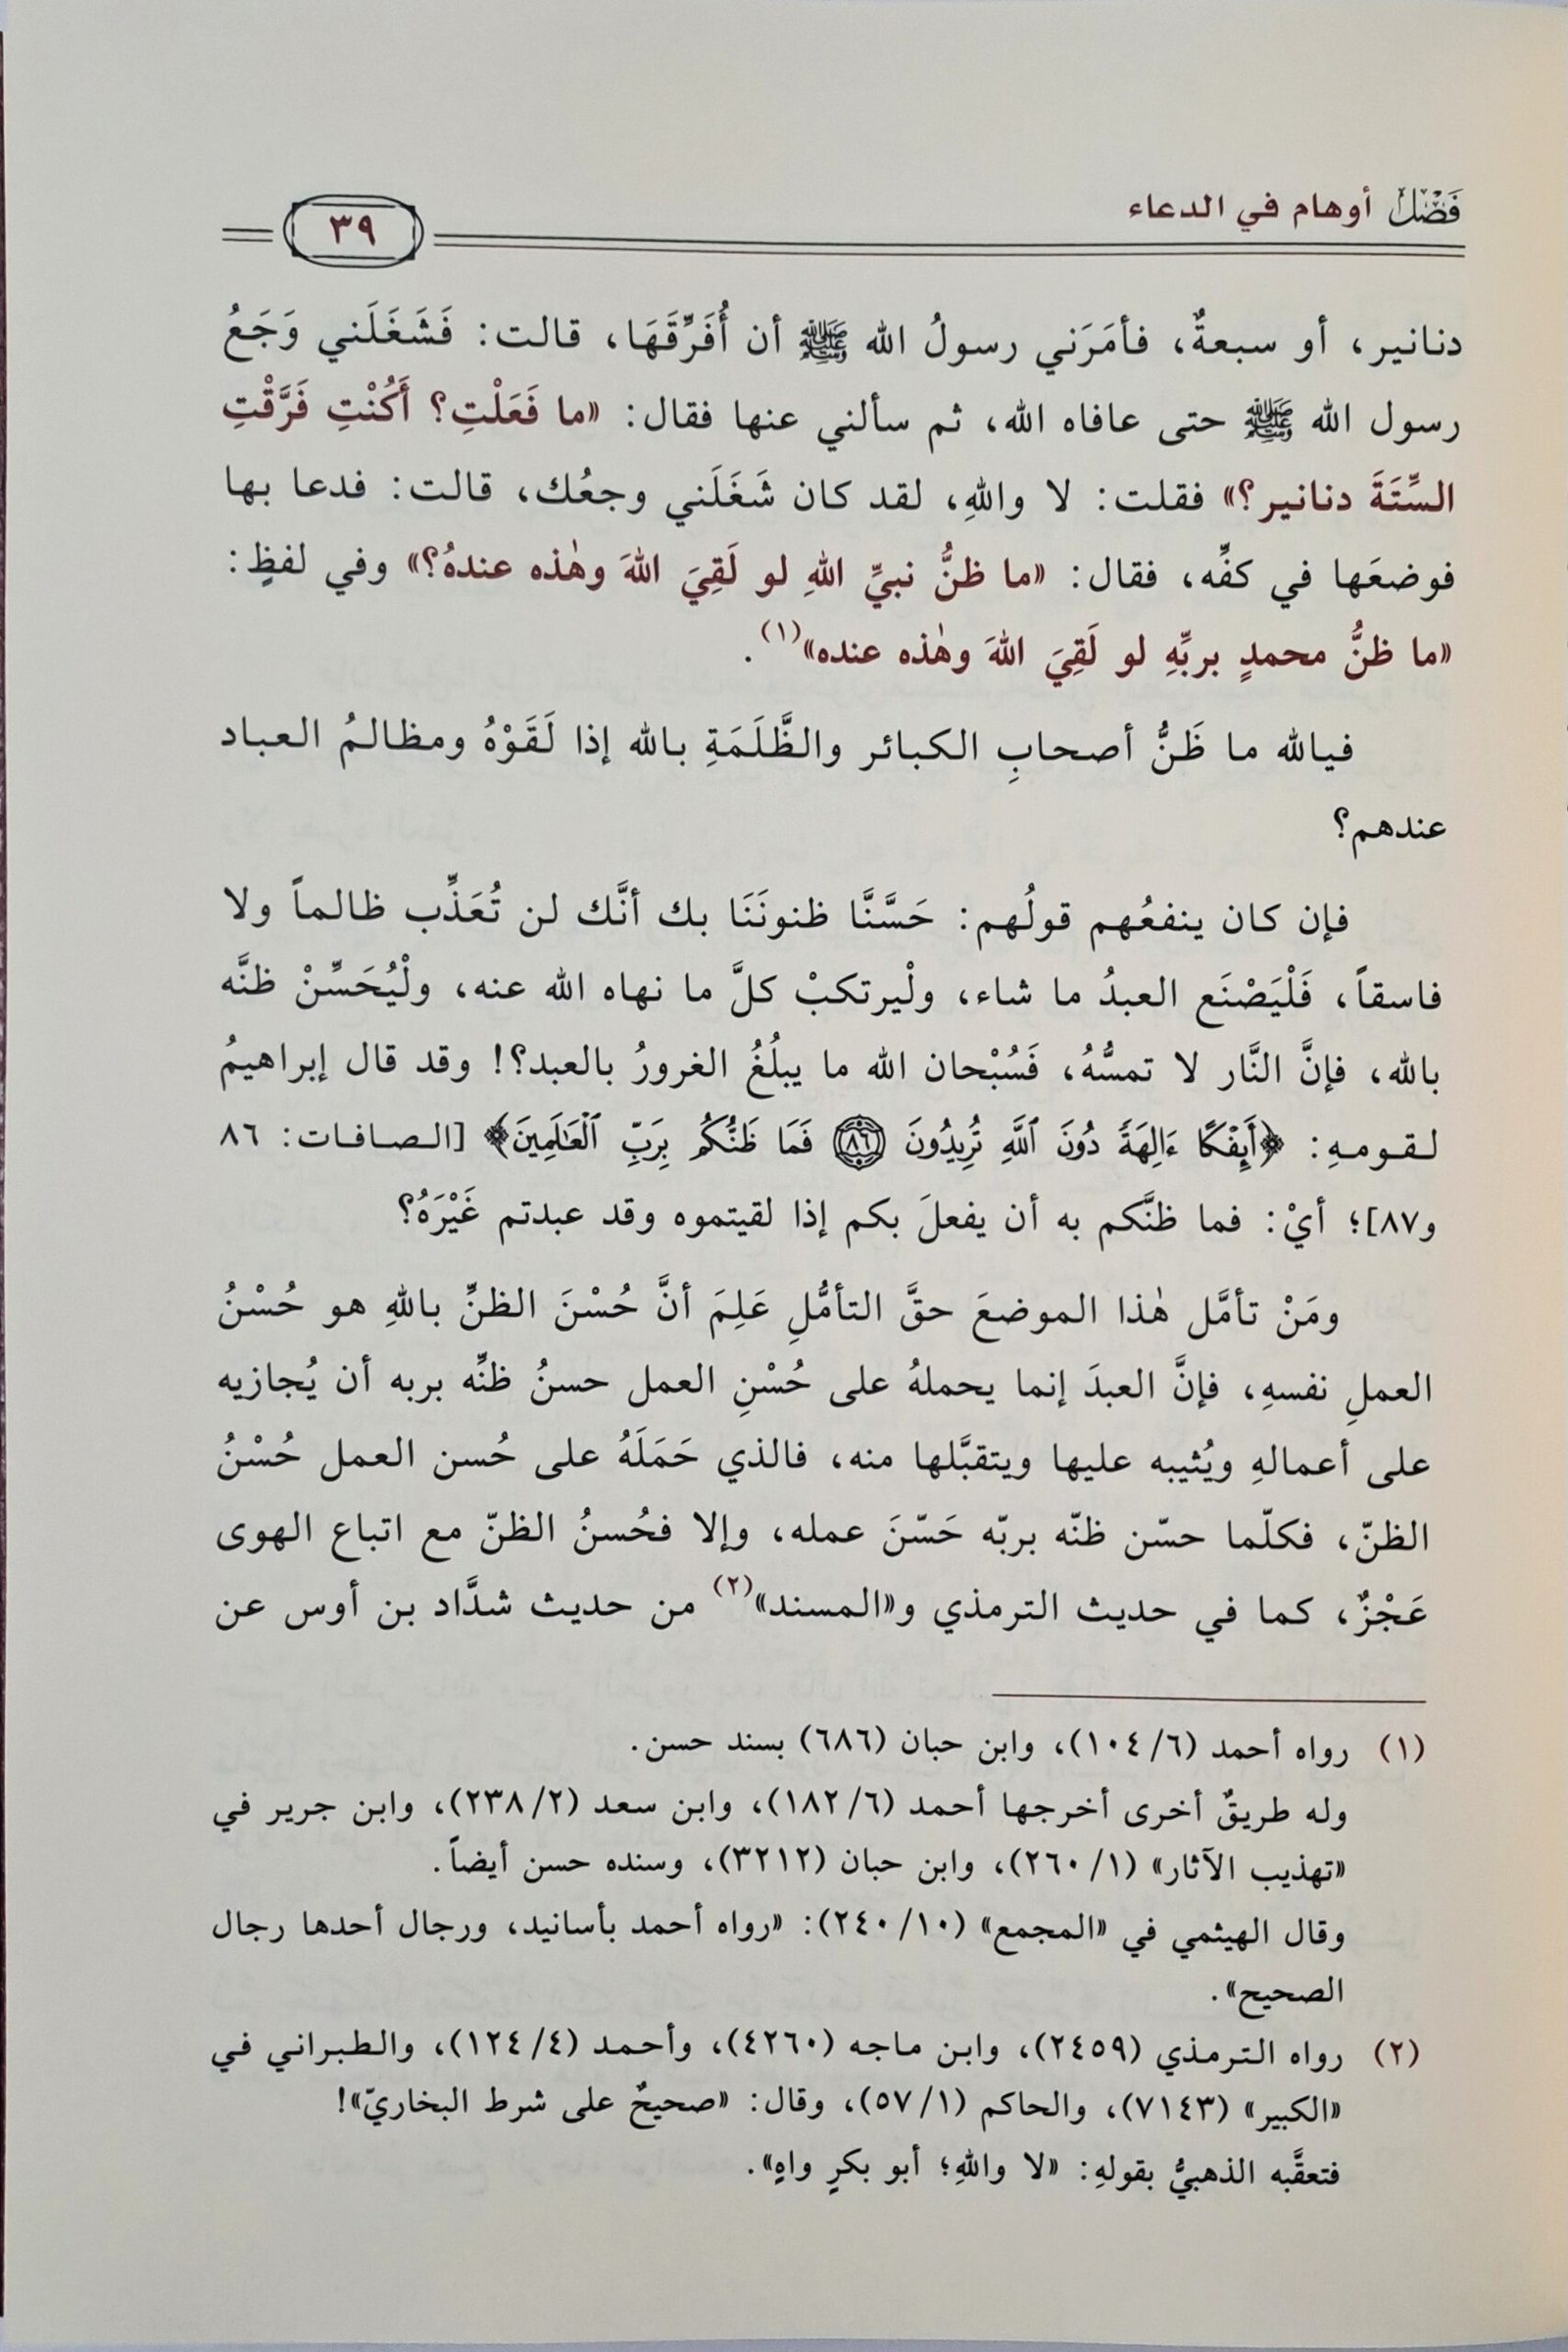 فَصْل أوهام في الدعاء
٣٩
دنانير، أو سبعةٌ، فأمَرَني رسولُ الله ﷺ أن أُفَرِّقَهَا، قالت: فَشَغَلَني وَجَعُ
رسول الله ﷺ حتى عافاه الله، ثم سألني عنها فقال: «ما فَعَلْتِ؟ أَكُنْتِ فَرَّقْتِ
السِّتَةَ دنانير؟» فقلت: لا واللهِ، لقد كان شَغَلَني وجعُك، قالت: فدعا بها
فوضعَها في كفِّه، فقال: «ما ظنُّ نبيِّ اللهِ لو لَقِيَ اللهَ وهٰذه عندهُ؟» وفي لفظٍ:
«ما ظنُّ محمدٍ بربِّهِ لو لَقِيَ اللهَ وهٰذه عنده»(١).
فيالله ما ظَنُّ أصحابِ الكبائر والظَّلَمَةِ بالله إذا لَقَوْهُ ومظالمُ العباد
عندهم؟
فإن كان ينفعُهم قولُهم: حَسَّنَّا ظنونَنَا بك أنَّك لن تُعَذِّب ظالماً ولا
فاسقاً، فَلْيَصْنَع العبدُ ما شاء، ولْيرتكبْ كلَّ ما نهاه الله عنه، ولْيُحَسِّنْ ظنَّه
بالله، فإنَّ النَّار لا تمسُّهُ، فَسُبْحان الله ما يبلُغُ الغرورُ بالعبد؟! وقد قال إبراهيمُ
لقومهِ: ﴿أَئِفْكًا ءَالِهَةً دُونَ ٱللَّهِ تُرِيدُونَ ٨٦ فَمَا ظَنُّكُم بِرَبِّ ٱلْعَٰلَمِينَ﴾ [الصافات: ٨٦
و٨٧]؛ أيْ: فما ظنَّكم به أن يفعلَ بكم إذا لقيتموه وقد عبدتم غَيْرَهُ؟
ومَنْ تأمَّل هٰذا الموضعَ حقَّ التأمُّلِ عَلِمَ أنَّ حُسْنَ الظنِّ باللهِ هو حُسْنُ
العملِ نفسهِ، فإنَّ العبدَ إنما يحملهُ على حُسْنِ العمل حسنُ ظنِّه بربه أن يُجازيه
على أعمالهِ ويُثيبه عليها ويتقبَّلها منه، فالذي حَمَلَهُ على حُسن العمل حُسْنُ
الظنّ، فكلّما حسّن ظنّه بربّه حَسّنَ عمله، وإلا فحُسنُ الظنّ مع اتباع الهوى
عَجْزٌ، كما في حديث الترمذي و«المسند»(٢) من حديث شدَّاد بن أوس عن
(١) رواه أحمد (٦/ ١٠٤)، وابن حبان (٦٨٦) بسند حسن.
وله طريقٌ أخرى أخرجها أحمد (٦/ ١٨٢)، وابن سعد (٢/ ٢٣٨)، وابن جرير في
«تهذيب الآثار» (١/ ٢٦٠)، وابن حبان (٣٢١٢)، وسنده حسن أيضاً.
وقال الهيثمي في «المجمع» (١٠/ ٢٤٠): «رواه أحمد بأسانيد، ورجال أحدها رجال
الصحيح».
(٢) رواه الترمذي (٢٤٥٩)، وابن ماجه (٤٢٦٠)، وأحمد (٤/ ١٢٤)، والطبراني في
«الكبير» (٧١٤٣)، والحاكم (١/ ٥٧)، وقال: «صحيحٌ على شرط البخاريّ»!
فتعقَّبه الذهبيُّ بقولهِ: «لا واللهِ؛ أبو بكرٍ واهٍ».